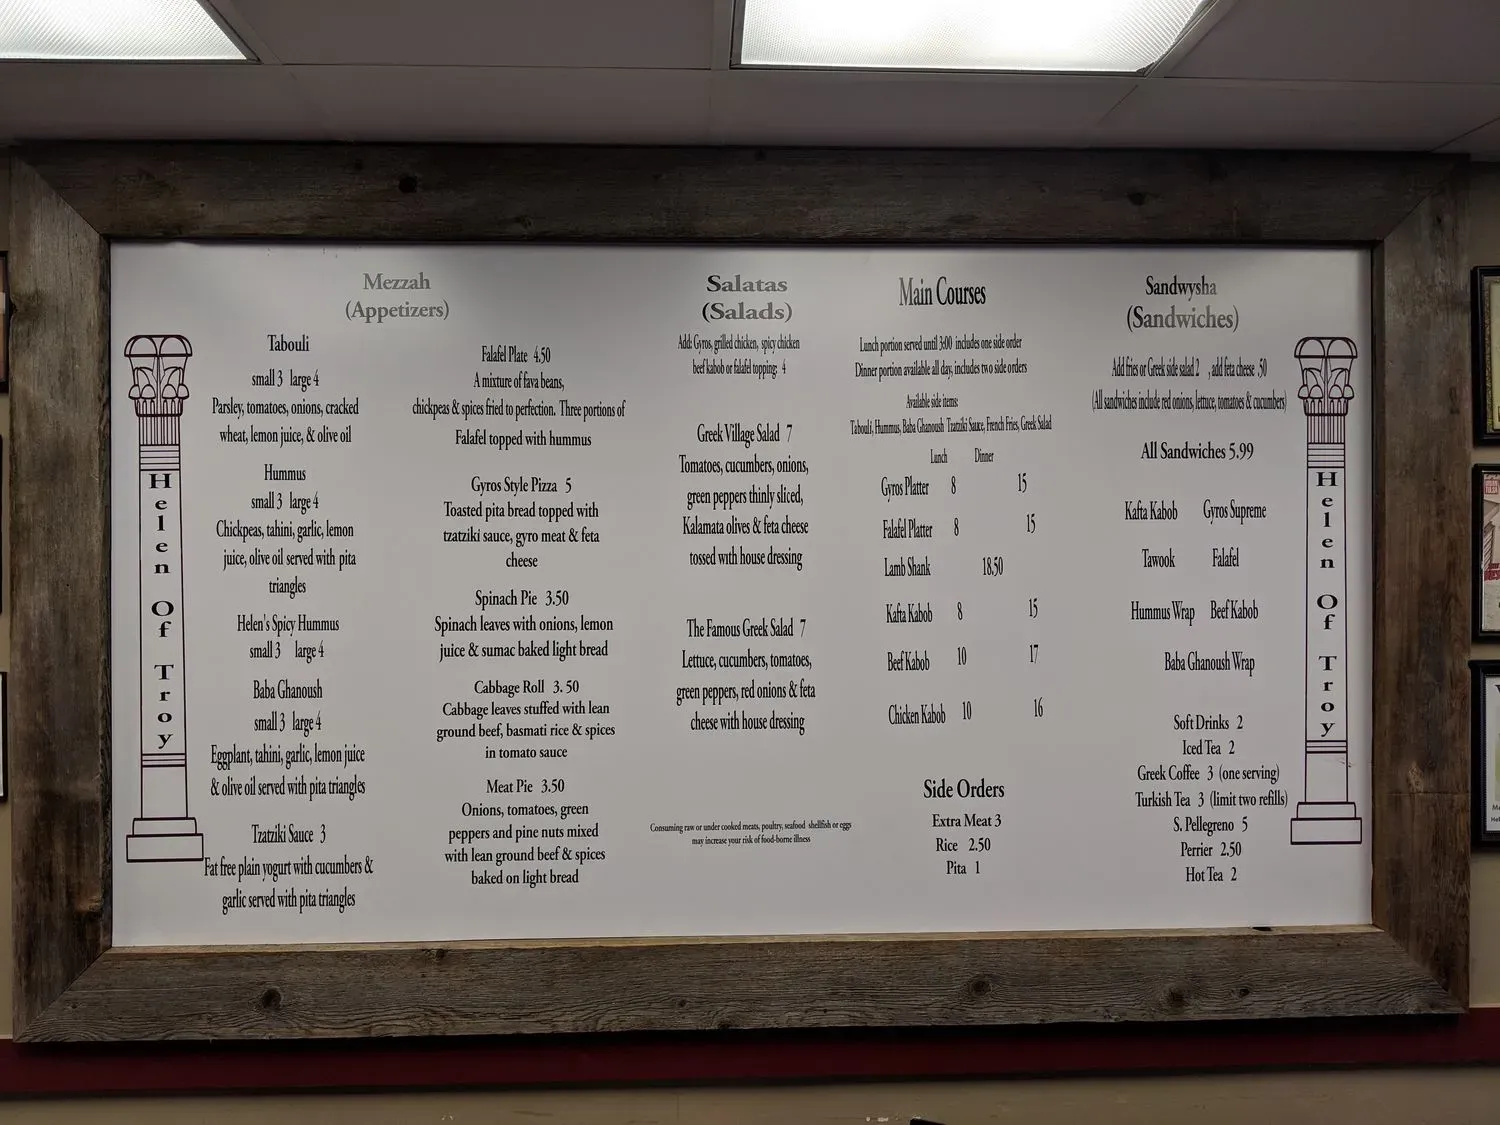 Mezzah
(Appetizers)
Tabouli
small 3 large 4
Parsley, tomatoes, onions, cracked
wheat, lemon juice, & olive oil
Hummus
small 3 large 4
Chickpeas, tahini, garlic, lemon
juice, olive oil served with pita
triangles
Helen's Spicy Hummus
small 3 large 4
Baba Ghanoush
small 3 large 4
Eggplant, tahini, garlic, lemon juice
& olive oil served with pita triangles
Tzatziki Sauce 3
Fat free plain yogurt with cucumbers &
garlic served with pita triangles
Falafel Plate 4.50
A mixture of fava beans,
chickpeas & spices fried to perfection. Three portions of
Falafel topped with hummus
Gyros Style Pizza 5
Toasted pita bread topped with
tzatziki sauce, gyro meat & feta
cheese
Spinach Pie 3.50
Spinach leaves with onions, lemon
juice & sumac baked light bread
Cabbage Roll 3. 50
Cabbage leaves stuffed with lean
ground beef, basmati rice & spices
in tomato sauce
Meat Pie 3.50
Onions, tomatoes, green
peppers and pine nuts mixed
with lean ground beef & spices
baked on light bread
Salatas
(Salads)
Add: Gyros, grilled chicken, spicy chicken
beef kabob or falafel topping: 4
Greek Village Salad 7
Tomatoes, cucumbers, onions,
green peppers thinly sliced,
Kalamata olives & feta cheese
tossed with house dressing
The Famous Greek Salad 7
Lettuce, cucumbers, tomatoes,
green peppers, red onions & feta
cheese with house dressing
Consuming raw or under cooked meats, poultry, seafood shellfish or eggs
may increase your risk of food-borne illness
Main Courses
Lunch portion served until 3:00 includes one side order
Dinner portion available all day, includes two side orders
Available side items:
Tabouli, Hummus, Baba Ghanoush Tzatziki Sauce, French Fries, Greek Salad
Lunch Dinner
Gyros Platter 8 15
Falafel Platter 8 15
Lamb Shank 18.50
Kafta Kabob 8 15
Beef Kabob 10 17
Chicken Kabob 10 16
Side Orders
Extra Meat 3
Rice 2.50
Pita 1
Sandwysha
(Sandwiches)
Add fries or Greek side salad 2 , add feta cheese .50
(All sandwiches include red onions, lettuce, tomatoes & cucumbers)
All Sandwiches 5.99
Kafta Kabob Gyros Supreme
Tawook Falafel
Hummus Wrap Beef Kabob
Baba Ghanoush Wrap
Soft Drinks 2
Iced Tea 2
Greek Coffee 3 (one serving)
Turkish Tea 3 (limit two refills)
S. Pellegreno 5
Perrier 2.50
Hot Tea 2
Helen Of Troy
Helen Of Troy